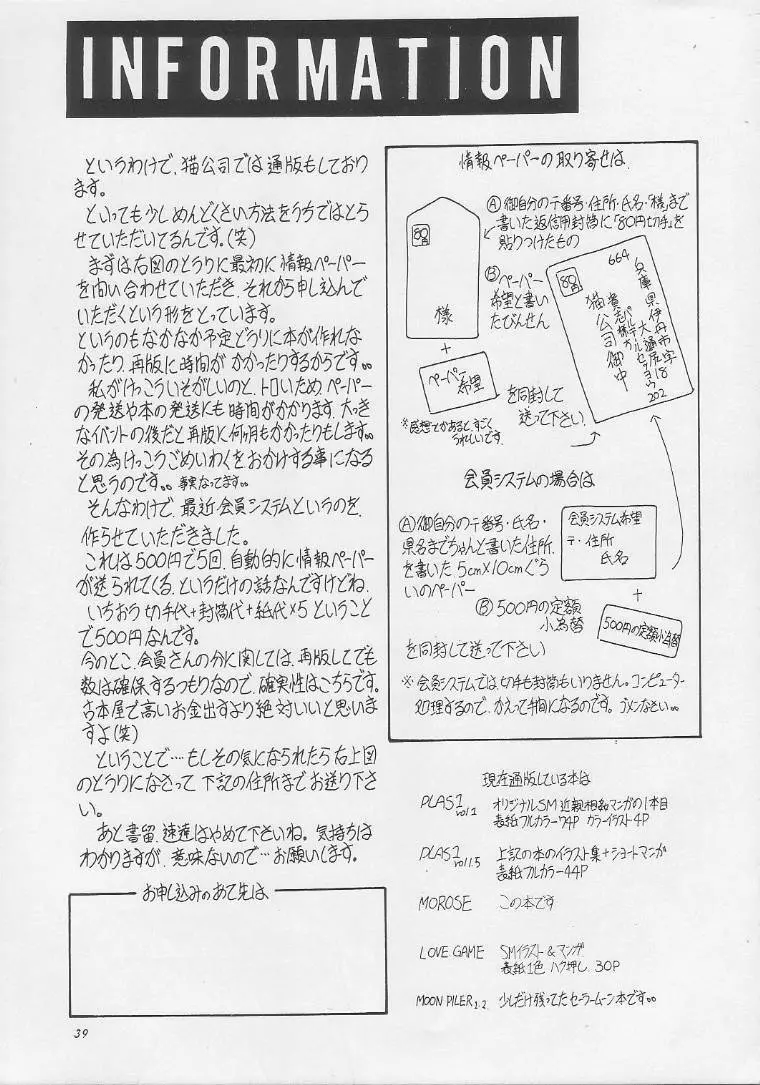 INFORMATION
というわけで、猫公司では通版もしており
ます。
といっても少しめんどくさい方法をうちではとら
せていただいてるんです。(笑)
まずは右図のとうりに最初に情報ペーパー
を問い合わせていただき、それから申し込んで
いただくという形をとっています。
というのもなかなか予定どうりに本が作れな
かったり、再版に時間がかかったりするからです。。
私がけっこういそがしいのと、トロいため、ペーパー
の発送や本の発送にも時間がかかります。大っき
なイベントの後だと再版に何ヶ月もかかったりもします。。
その為けっこうごめいわくをおかけする事になる
と思うのです。。事実なってます。。
そんなわけで、最近会員システムというのを、
作らせていただきました。
これは500円で5回、自動的に情報ペーパー
が送られてくる、というだけの話なんですけどね、
いちおう切手代+封筒代+紙代×5ということ
で500円なんです。
今のとこ、会員さんの分に関しては、再版してでも
数は確保するつもりなので、確実性はこちらです。
古本屋で高いお金出すより絶対いいと思いま
すよ(笑)
ということで…もしその気になられたら右上図
のとうりになさって下記の住所までお送り下さ
い。
あと書留、速達はやめて下さいね。気持ちは
わかりますが、意味ないので…お願いします。
お申し込みのあて先は
39
情報ペーパーの取り寄せは
Ⓐ御自分の〒番号・住所・氏名・「様」まで
書いた返信用封筒に「80円切手」を
貼りつけたもの
80
様
+
ペーパー
希望
Ⓑペーパー
希望と書い
たびんせん
を同封して
送って下さい
※感想とかあると、すごく
うれしいです。
80
664
兵庫県伊丹市
202
猫公司御中
会員システムの場合は
Ⓐ御自分の〒番号・氏名・
県名までちゃんと書いた住所、
を書いた5cm×10cmぐら
いのペーパー
会員システム希望
〒・住所
氏名
+
Ⓑ500円の定額
小為替
500円の定額小為替
を同封して送って下さい
※会員システムでは、切手も封筒もいりません。コンピューター
処理するので、かえって手間になるのです。ゴメンなさい。。
現在通版している本は
PLAS1 vol.1 オリジナルSM近親相姦マンガの1本目
表紙フルカラー74P カラーイラスト4P
PLAS1 vol1.5 上記の本のイラスト集+ショートマンガ
表紙フルカラー44P
MOROSE この本です
LOVE GAME SMイラスト&マンガ
表紙1色 ハク押し 30P
MOON PILER1.2 少しだけ残ってたセーラームーン本です。。